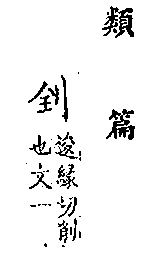 類篇
釗
逡緣切削
也文一